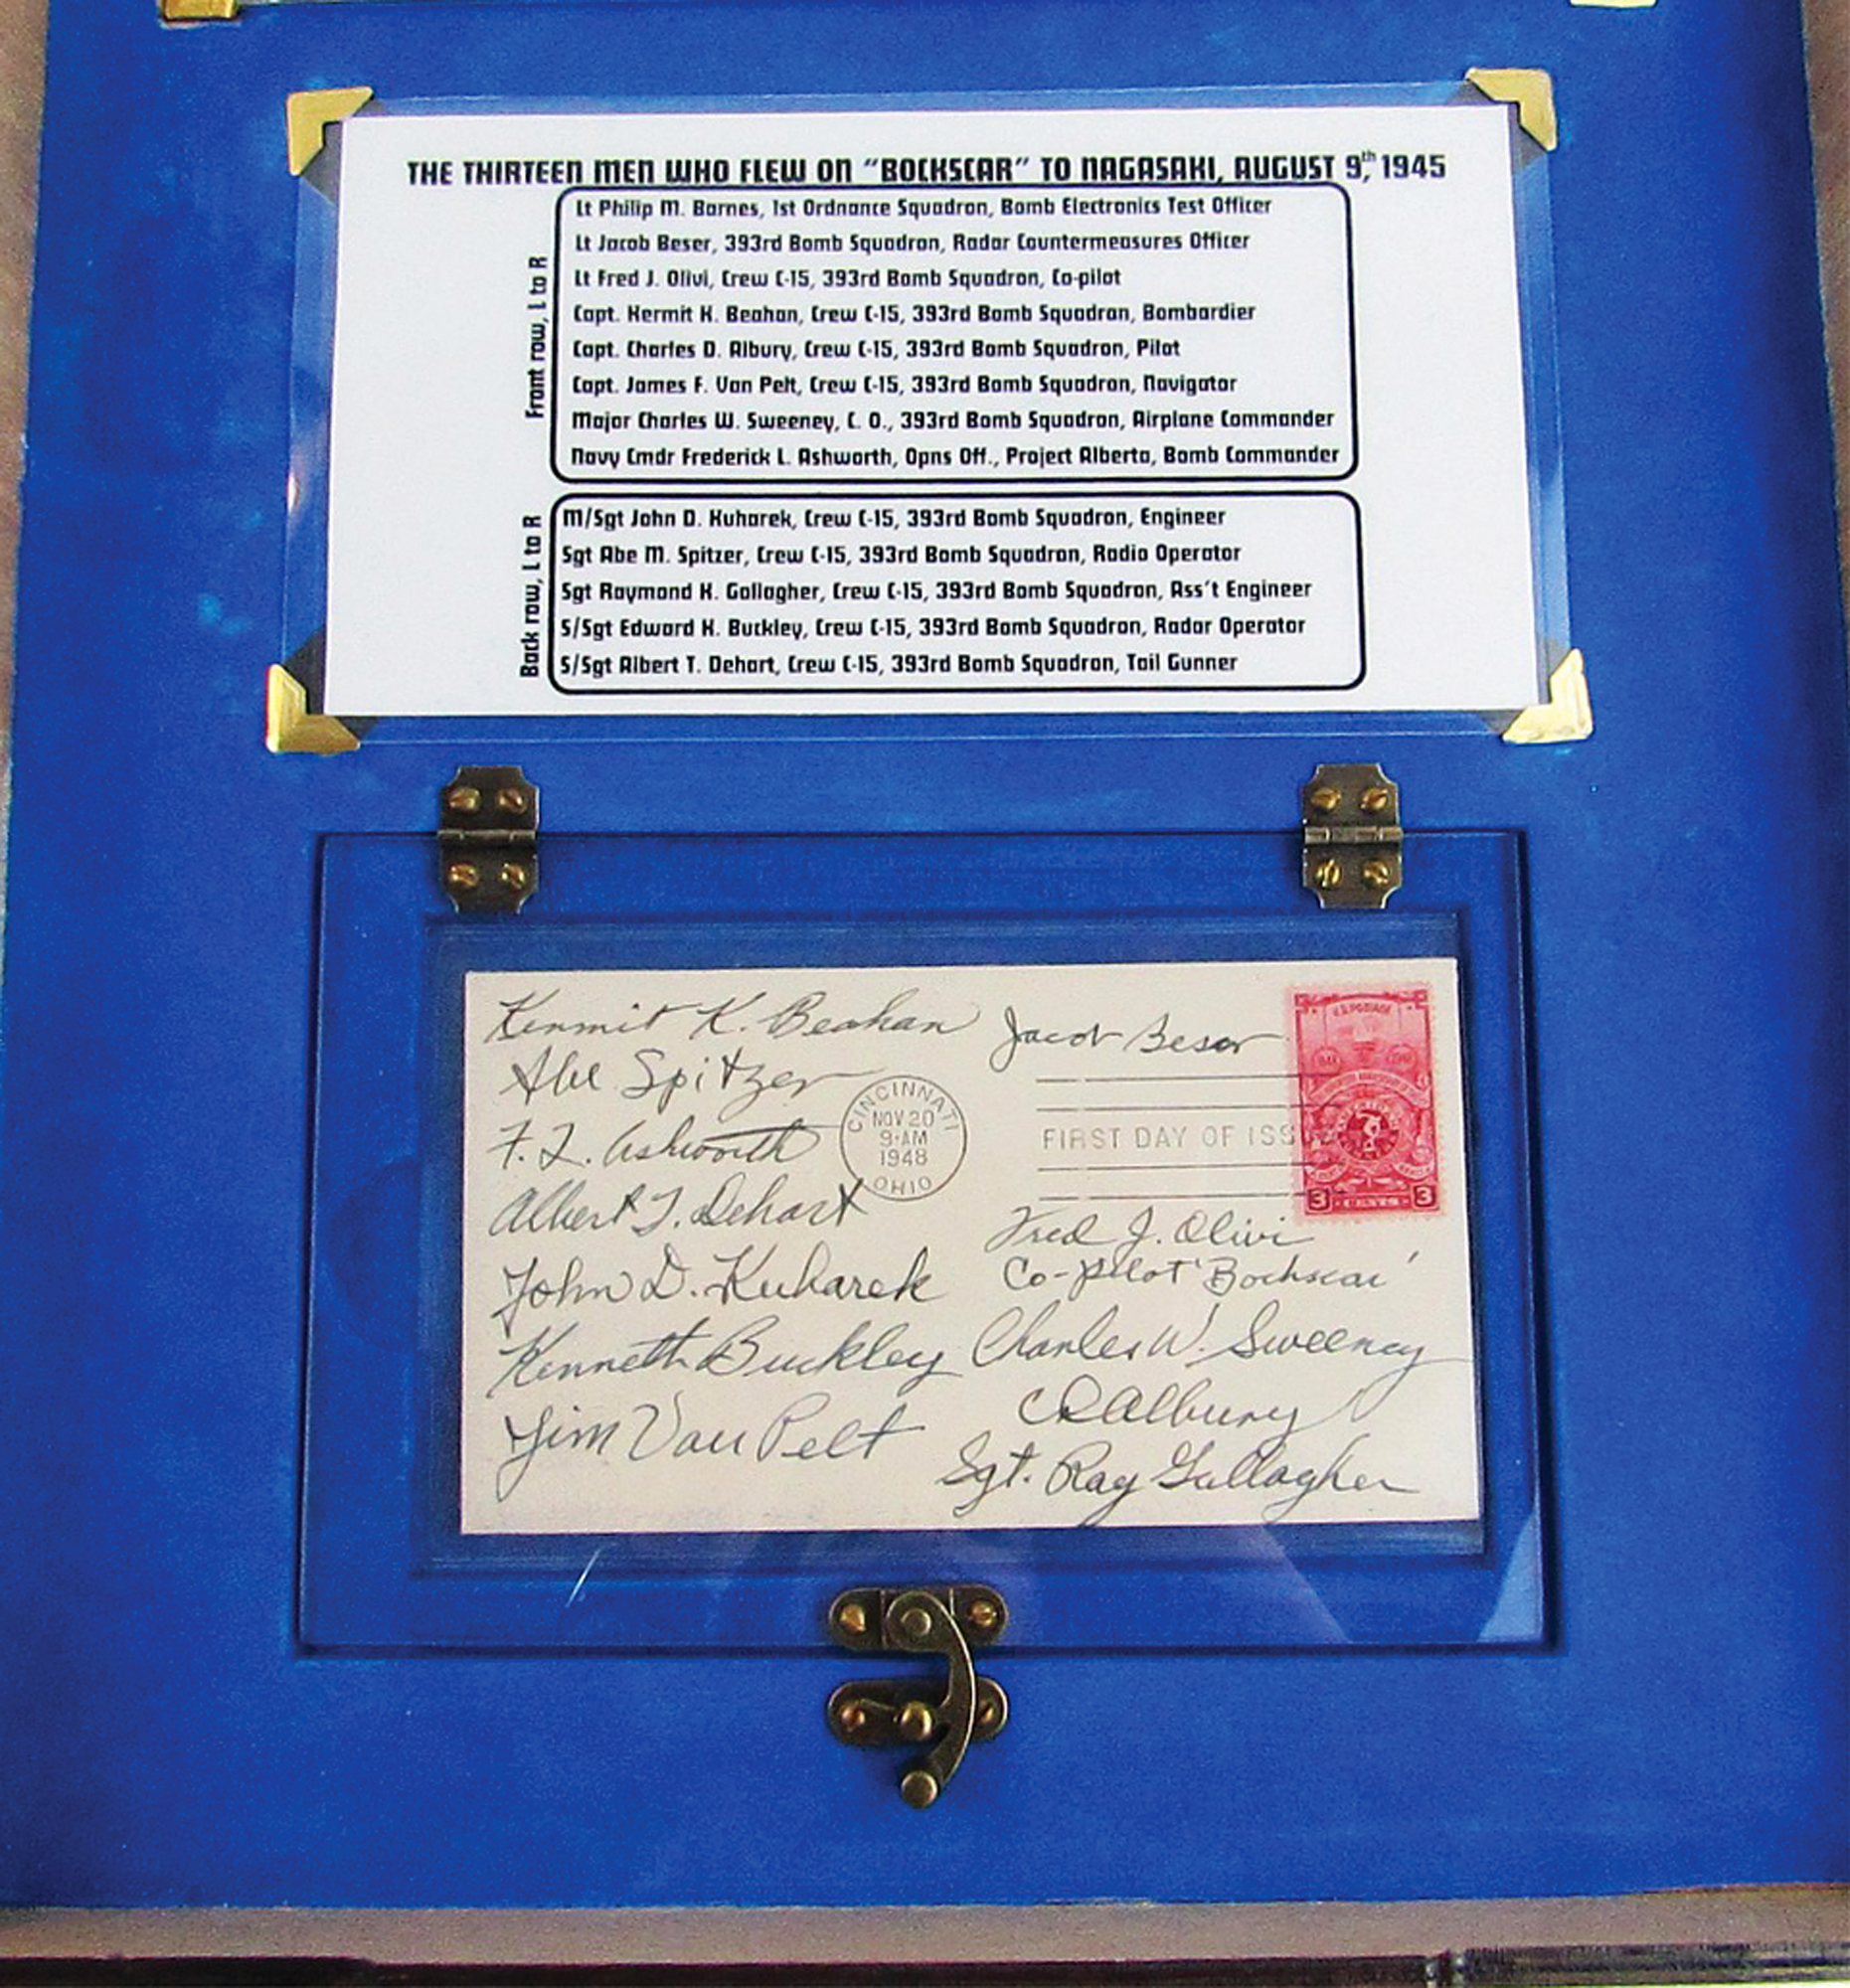 THE THIRTEEN MEN WHO FLEW ON "BOCKSCAR" TO NAGASAKI, AUGUST 9th, 1945
Front row, L to R
Lt Philip M. Barnes, 1st Ordnance Squadron, Bomb Electronics Test Officer
Lt Jacob Beser, 393rd Bomb Squadron, Radar Countermeasures Officer
Lt Fred J. Olivi, Crew C-15, 393rd Bomb Squadron, Co-pilot
Capt. Kermit K. Beahan, Crew C-15, 393rd Bomb Squadron, Bombardier
Capt. Charles D. Albury, Crew C-15, 393rd Bomb Squadron, Pilot
Capt. James F. Van Pelt, Crew C-15, 393rd Bomb Squadron, Navigator
Major Charles W. Sweeney, C. O., 393rd Bomb Squadron, Airplane Commander
Navy Cmdr Frederick L. Ashworth, Opns Off., Project Alberta, Bomb Commander
Back row, L to R
M/Sgt John D. Kuharek, Crew C-15, 393rd Bomb Squadron, Engineer
Sgt Abe M. Spitzer, Crew C-15, 393rd Bomb Squadron, Radio Operator
Sgt Raymond K. Gallagher, Crew C-15, 393rd Bomb Squadron, Ass't Engineer
S/Sgt Edward K. Buckley, Crew C-15, 393rd Bomb Squadron, Radar Operator
S/Sgt Albert T. Dehart, Crew C-15, 393rd Bomb Squadron, Tail Gunner
Kermit K. Beahan
Abe Spitzer
F. L. Ashworth
Albert T. Dehart
John D. Kuharek
Kenneth Buckley
Jim Van Pelt
CINCINNATI
NOV 20
9-AM
1948
OHIO
Jacob Beser
FIRST DAY OF ISS
U.S. POSTAGE
3 CENTS 3
Fred J. Olivi
Co-pilot 'Bockscar'
Charles W. Sweeney
CD Albury
Sgt. Ray Gallagher